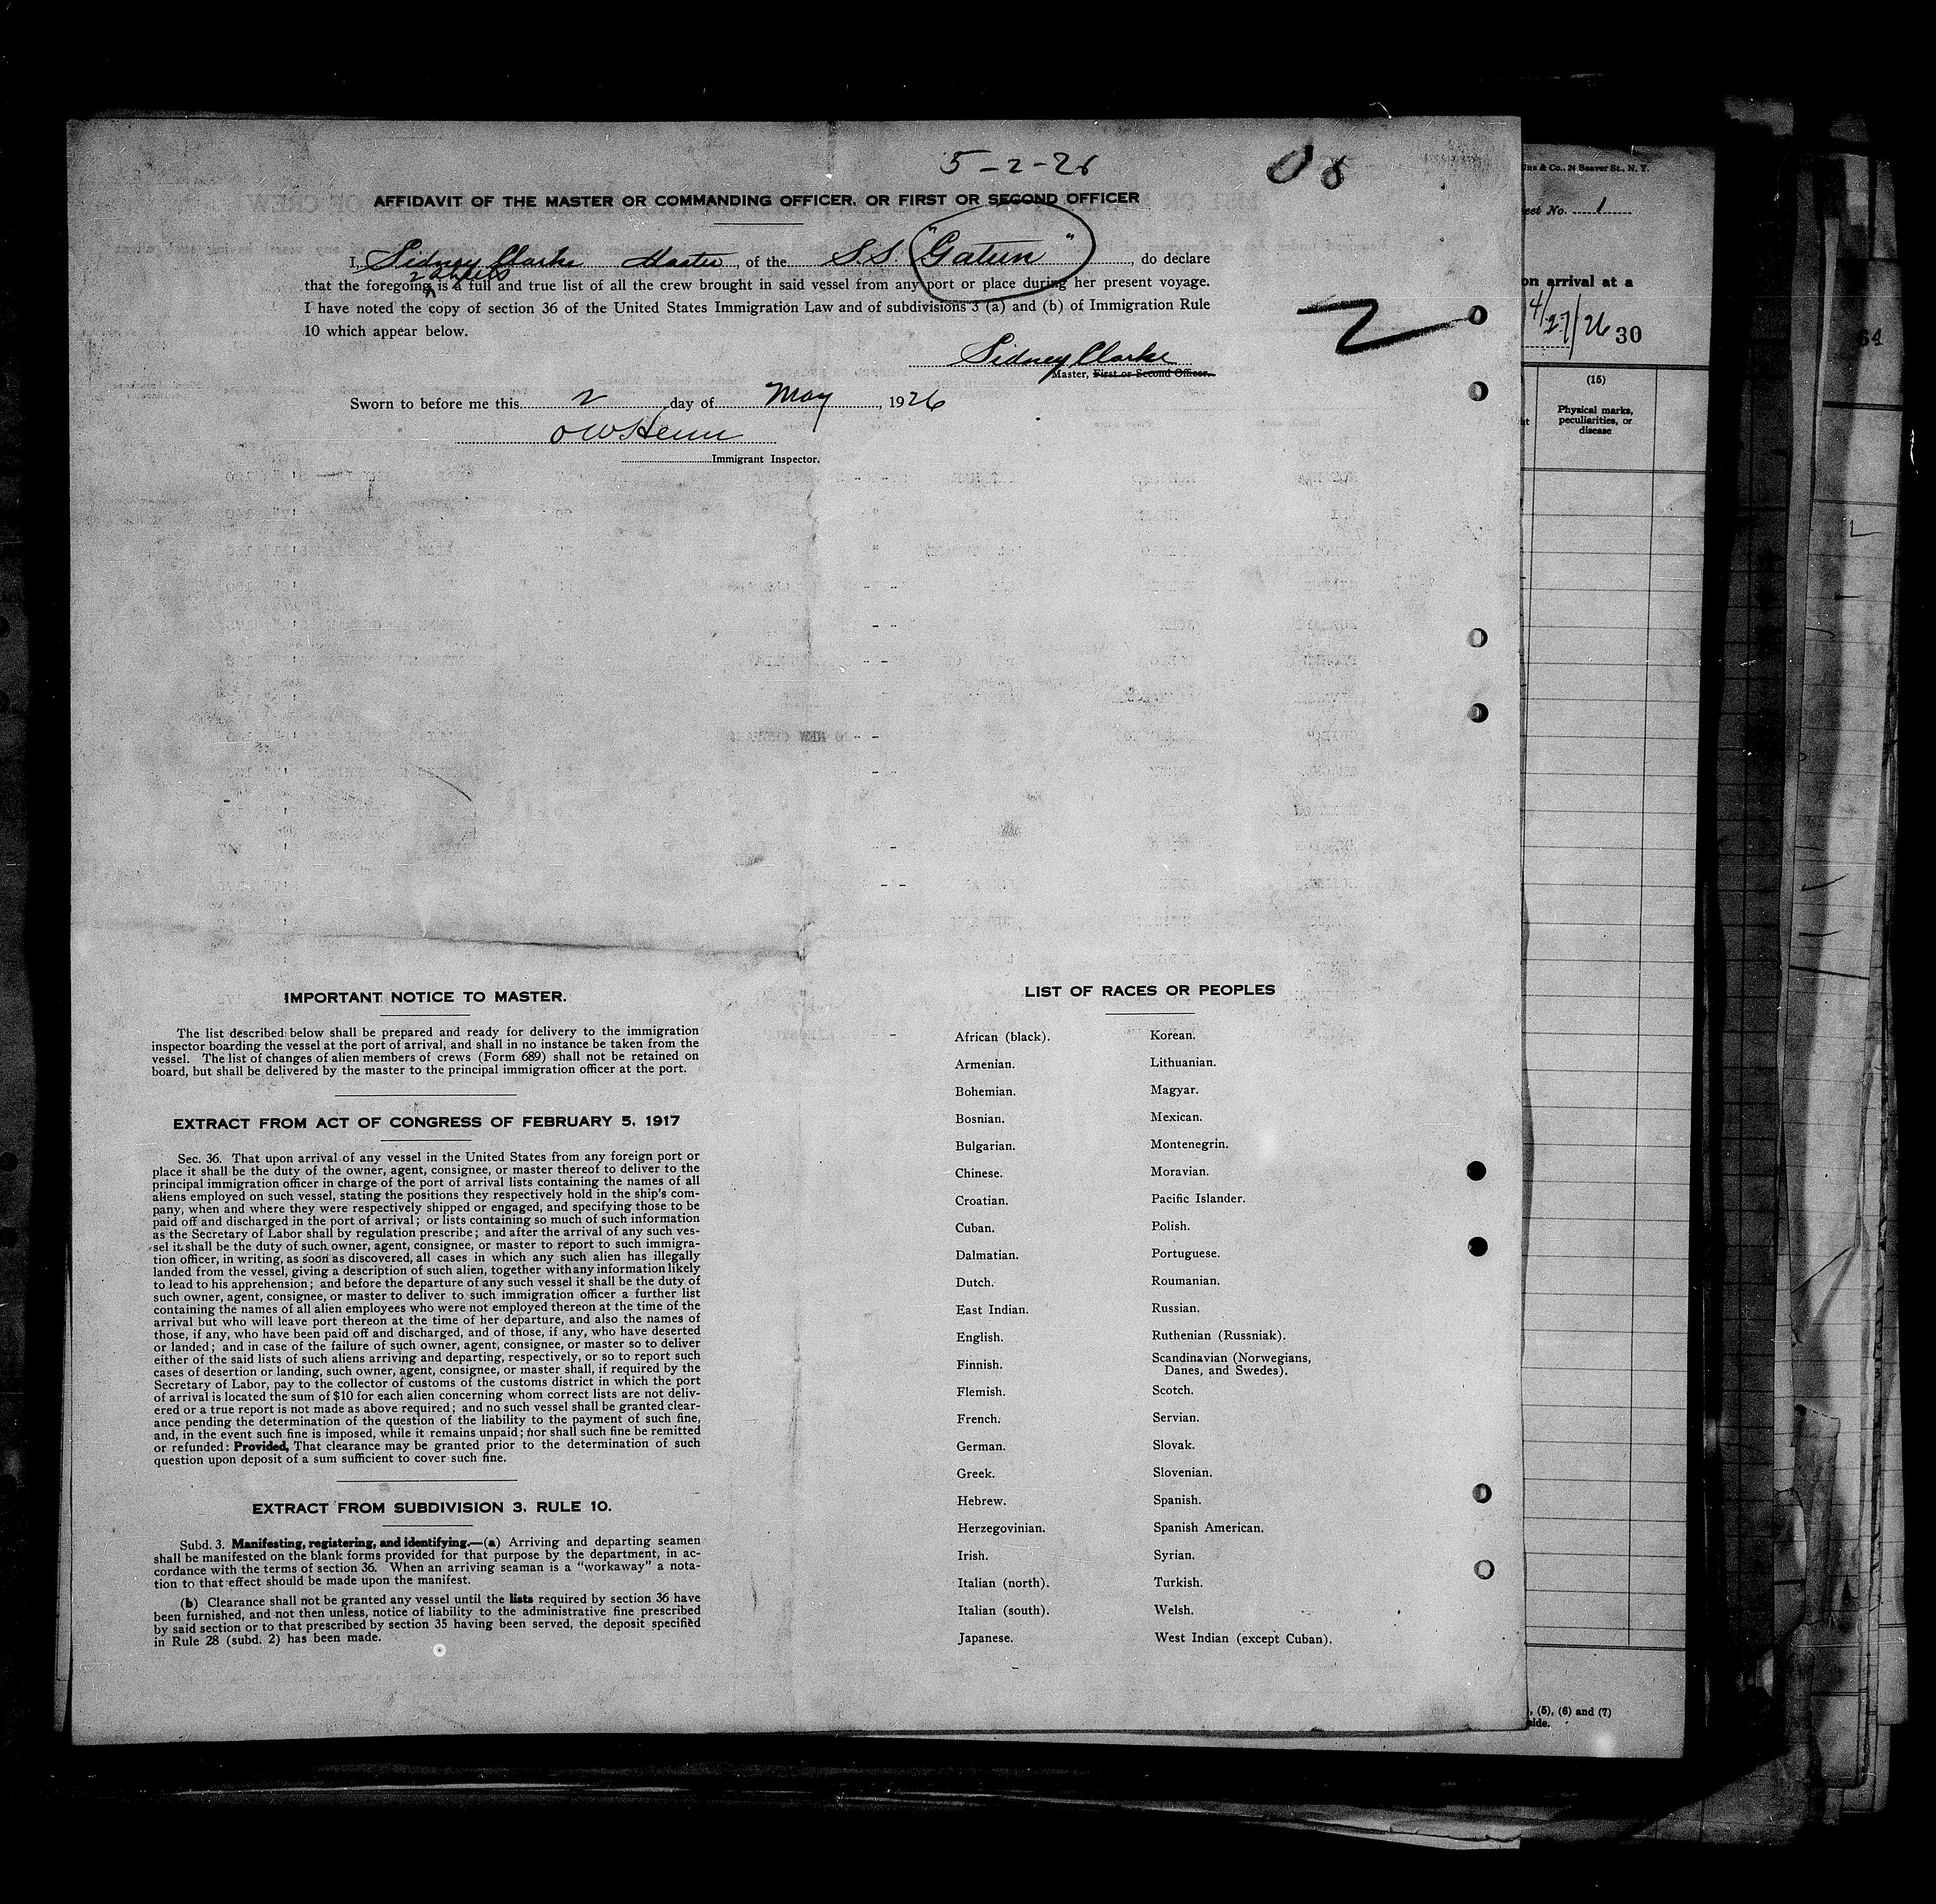 5-2-26
AFFIDAVIT OF THE MASTER OR COMMANDING OFFICER, OR FIRST OR SECOND OFFICER
I, Sidney Clarke Master, of the S.S. "Gatun", do declare
2 sheets
that the foregoing is a full and true list of all the crew brought in said vessel from any port or place during her present voyage.
I have noted the copy of section 36 of the United States Immigration Law and of subdivisions 3 (a) and (b) of Immigration Rule
10 which appear below.
2
Sidney Clarke
Master, First or Second Officer.
Sworn to before me this 2 day of May, 1926
Immigrant Inspector.
IMPORTANT NOTICE TO MASTER.
The list described below shall be prepared and ready for delivery to the immigration
inspector boarding the vessel at the port of arrival, and shall in no instance be taken from the
vessel. The list of changes of alien members of crews (Form 689) shall not be retained on
board, but shall be delivered by the master to the principal immigration officer at the port.
EXTRACT FROM ACT OF CONGRESS OF FEBRUARY 5, 1917
Sec. 36. That upon arrival of any vessel in the United States from any foreign port or
place it shall be the duty of the owner, agent, consignee, or master thereof to deliver to the
principal immigration officer in charge of the port of arrival lists containing the names of all
aliens employed on such vessel, stating the positions they respectively hold in the ship's com-
pany, when and where they were respectively shipped or engaged, and specifying those to be
paid off and discharged in the port of arrival; or lists containing so much of such information
as the Secretary of Labor shall by regulation prescribe; and after the arrival of any such ves-
sel it shall be the duty of such owner, agent, consignee, or master to report to such immigra-
tion officer, in writing, as soon as discovered, all cases in which any such alien has illegally
landed from the vessel, giving a description of such alien, together with any information likely
to lead to his apprehension; and before the departure of any such vessel it shall be the duty of
such owner, agent, consignee, or master to deliver to such immigration officer a further list
containing the names of all alien employees who were not employed thereon at the time of the
arrival but who will leave port thereon at the time of her departure, and also the names of
those, if any, who have been paid off and discharged, and of those, if any, who have deserted
or landed; and in case of the failure of such owner, agent, consignee, or master so to deliver
either of the said lists of such aliens arriving and departing, respectively, or so to report such
cases of desertion or landing, such owner, agent, consignee, or master shall, if required by the
Secretary of Labor, pay to the collector of customs of the customs district in which the port
of arrival is located the sum of $10 for each alien concerning whom correct lists are not deliv-
ered or a true report is not made as above required; and no such vessel shall be granted clear-
ance pending the determination of the question of the liability to the payment of such fine,
and, in the event such fine is imposed, while it remains unpaid; nor shall such fine be remitted
or refunded: Provided, That clearance may be granted prior to the determination of such
question upon deposit of a sum sufficient to cover such fine.
EXTRACT FROM SUBDIVISION 3, RULE 10.
Subd. 3. Manifesting, registering, and identifying.—(a) Arriving and departing seamen
shall be manifested on the blank forms provided for that purpose by the department, in ac-
cordance with the terms of section 36. When an arriving seaman is a "workaway" a nota-
tion to that effect should be made upon the manifest.
(b) Clearance shall not be granted any vessel until the lists required by section 36 have
been furnished, and not then unless, notice of liability to the administrative fine prescribed
by said section or to that prescribed by section 35 having been served, the deposit specified
in Rule 28 (subd. 2) has been made.
LIST OF RACES OR PEOPLES
African (black).
Armenian.
Bohemian.
Bosnian.
Bulgarian.
Chinese.
Croatian.
Cuban.
Dalmatian.
Dutch.
East Indian.
English.
Finnish.
Flemish.
French.
German.
Greek.
Hebrew.
Herzegovinian.
Irish.
Italian (north).
Italian (south).
Japanese.
Korean.
Lithuanian.
Magyar.
Mexican.
Montenegrin.
Moravian.
Pacific Islander.
Polish.
Portuguese.
Roumanian.
Russian.
Ruthenian (Russniak).
Scandinavian (Norwegians,
Danes, and Swedes).
Scotch.
Servian.
Slovak.
Slovenian.
Spanish.
Spanish American.
Syrian.
Turkish.
Welsh.
West Indian (except Cuban).
& Co., 24 Beaver St., N. Y.
No. 1
on arrival at a
4/27/26 30
(15)
Physical marks,
peculiarities, or
disease
(5), (6) and (7)
64